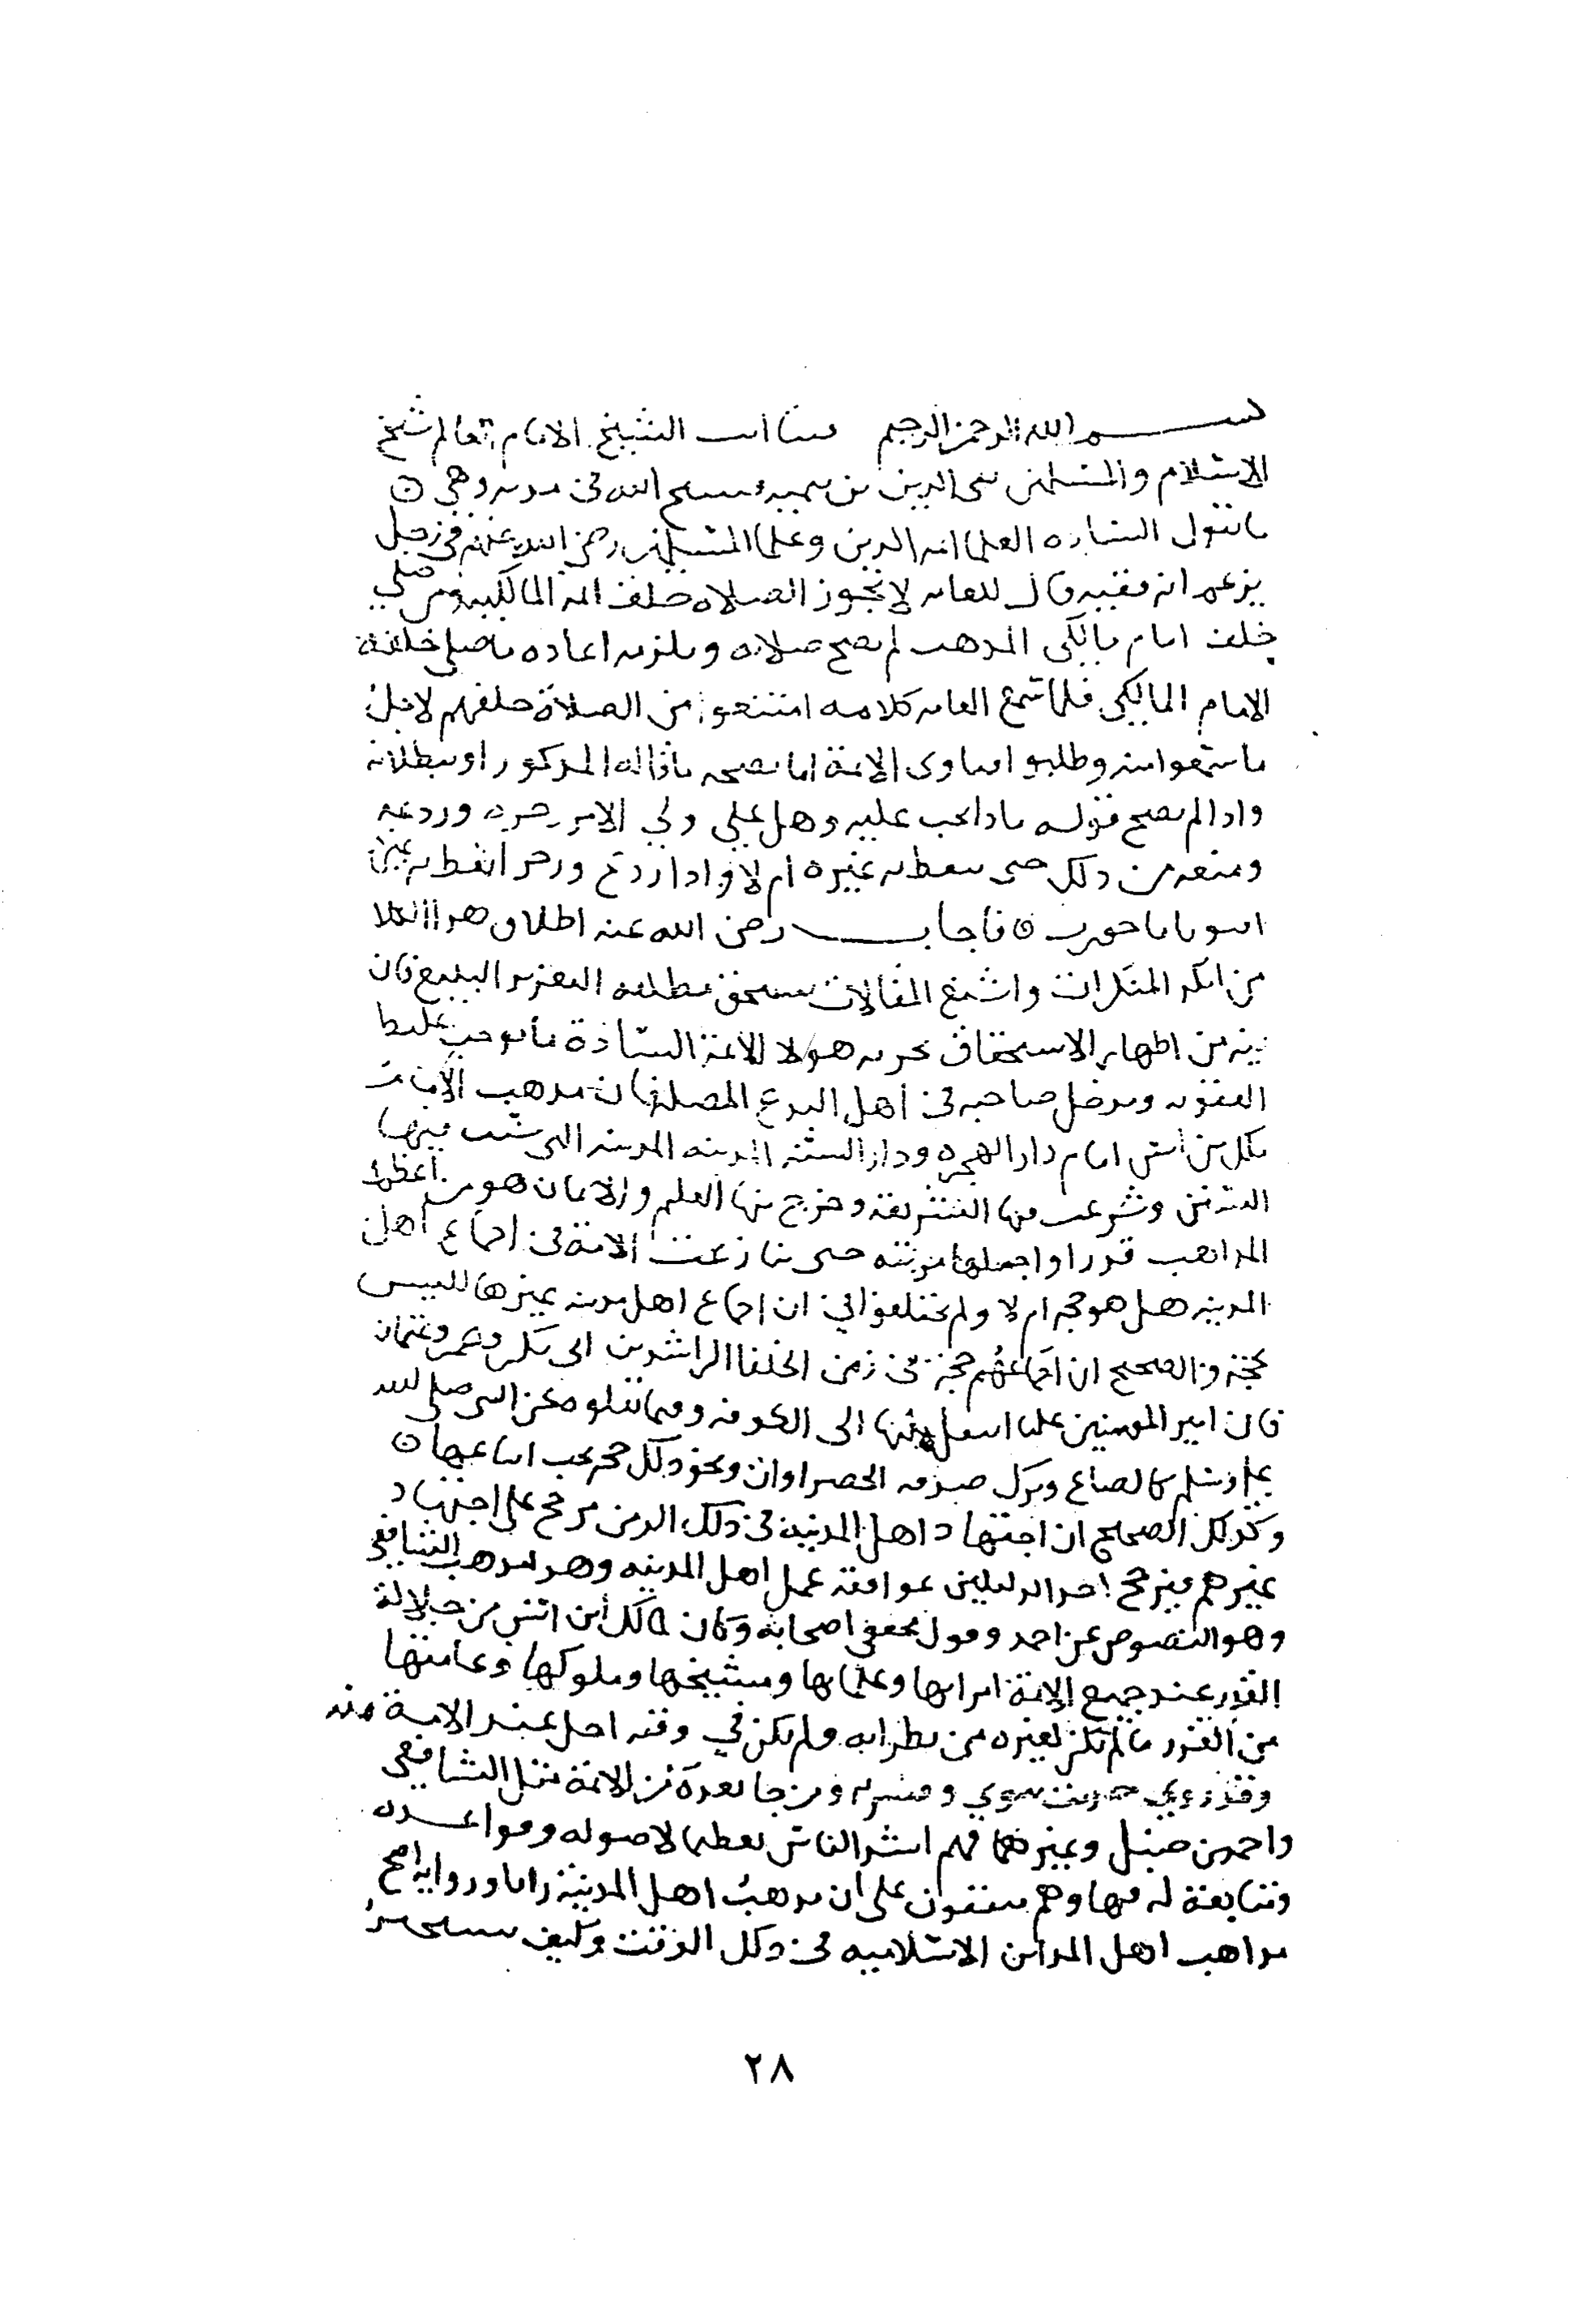 بسم الله الرحمن الرحيم الشيخ الامام العالم شيخ
الاسلام والمسلمين تقى الدين بن تيميه فسح الله فى مدته وهى
ما تقول الساده العلما ايمه الدين وعلما المسلمين رضى الله عنهم فى رجل
يزعم انه فقيه قال للعامه لا تجوز الصلاه خلف ايمه المالكيه ومن صلى
خلف امام مالكى المذهب لم تصح صلاته ويلزمه اعاده ما صلى خلف
الامام المالكى فلما سمع العامه كلامه امتنعوا من الصلاة خلفهم لاجل
ما سمعوا منه وطلبوا فتاوى الايمة اما بصحه ما قاله المذكور او ببطلانه
واذا لم يصح قوله ماذا يجب عليه وهل على ولى الامر ضربه وردعه
ومنعه من ذلك حتى يتعظ به غيره ام لا واذا ردع وزجر اتعظ به غيره
افتونا ماجورين فاجاب رضى الله عنه اطلاق هذا الكلام
من انكر المنكرات واشنع المقالات يستحق مطلقه التعزير البليغ فان
فيه من اظهار الاستخفاف بحرمه هولا الايمة السادة ما يوجب غليظ
العقوبه ويدخل صاحبه فى اهل البدع المضلين فان مذهب الامام
ملك بن انس امام دار الهجره ودار السنه المدينه التى سنت فيها
السنن وشرعت فيها الشريعه وخرج منها العلم والايمان هو من اعظم
المذاهب قدرا واجلها مرتبه حتى تنازعت الامة فى اجماع اهل
المدينه هل هو حجه ام لا ولم يختلفوا فى ان اجماع اهل مدينه غيرها ليس
بحجة والصحيح ان اجماعهم حجة فى زمن الخلفا الراشدين ابى بكر وعمر وعثمان
فان امير المومنين عليا انتقل منها الى الكوفه وفيما نقلوه عن النبى صلى الله
عليه وسلم كالصاع وترك صدقه الخضراوات ونحو ذلك حجه يجب اتباعها
وكذلك الصحيح ان اجتهاد اهل المدينة فى ذلك الزمن مرجح على اجتهاد
غيرهم فيرجح احد الدليلين بموافقه عمل اهل المدينه وهو مذهب الشافعى
وهو المنصوص عن احمد وقول محققى اصحابه وكان لملك ابن انس من جلالة
القدر عند جميع الامة امرايها وعلمايها ومشيخها وملوكها وعامتها
من القدر ما لم يكن لغيره من نظرايه ولم يكن في وقته اجل عند الامة منه
وقد روي حديث نبوي وفسر به ومن جا بعده من الايمة مثل الشافعى
واحمد بن حنبل وغيرهما فهم اشد الناس تعظيما لاصوله وقواعده
ومتابعة له فيها وهم متفقون على ان مذهب اهل المدينة رايا ورواية اصح
مذاهب اهل المداين الاسلاميه فى ذلك الوقت وكيف
٢٨